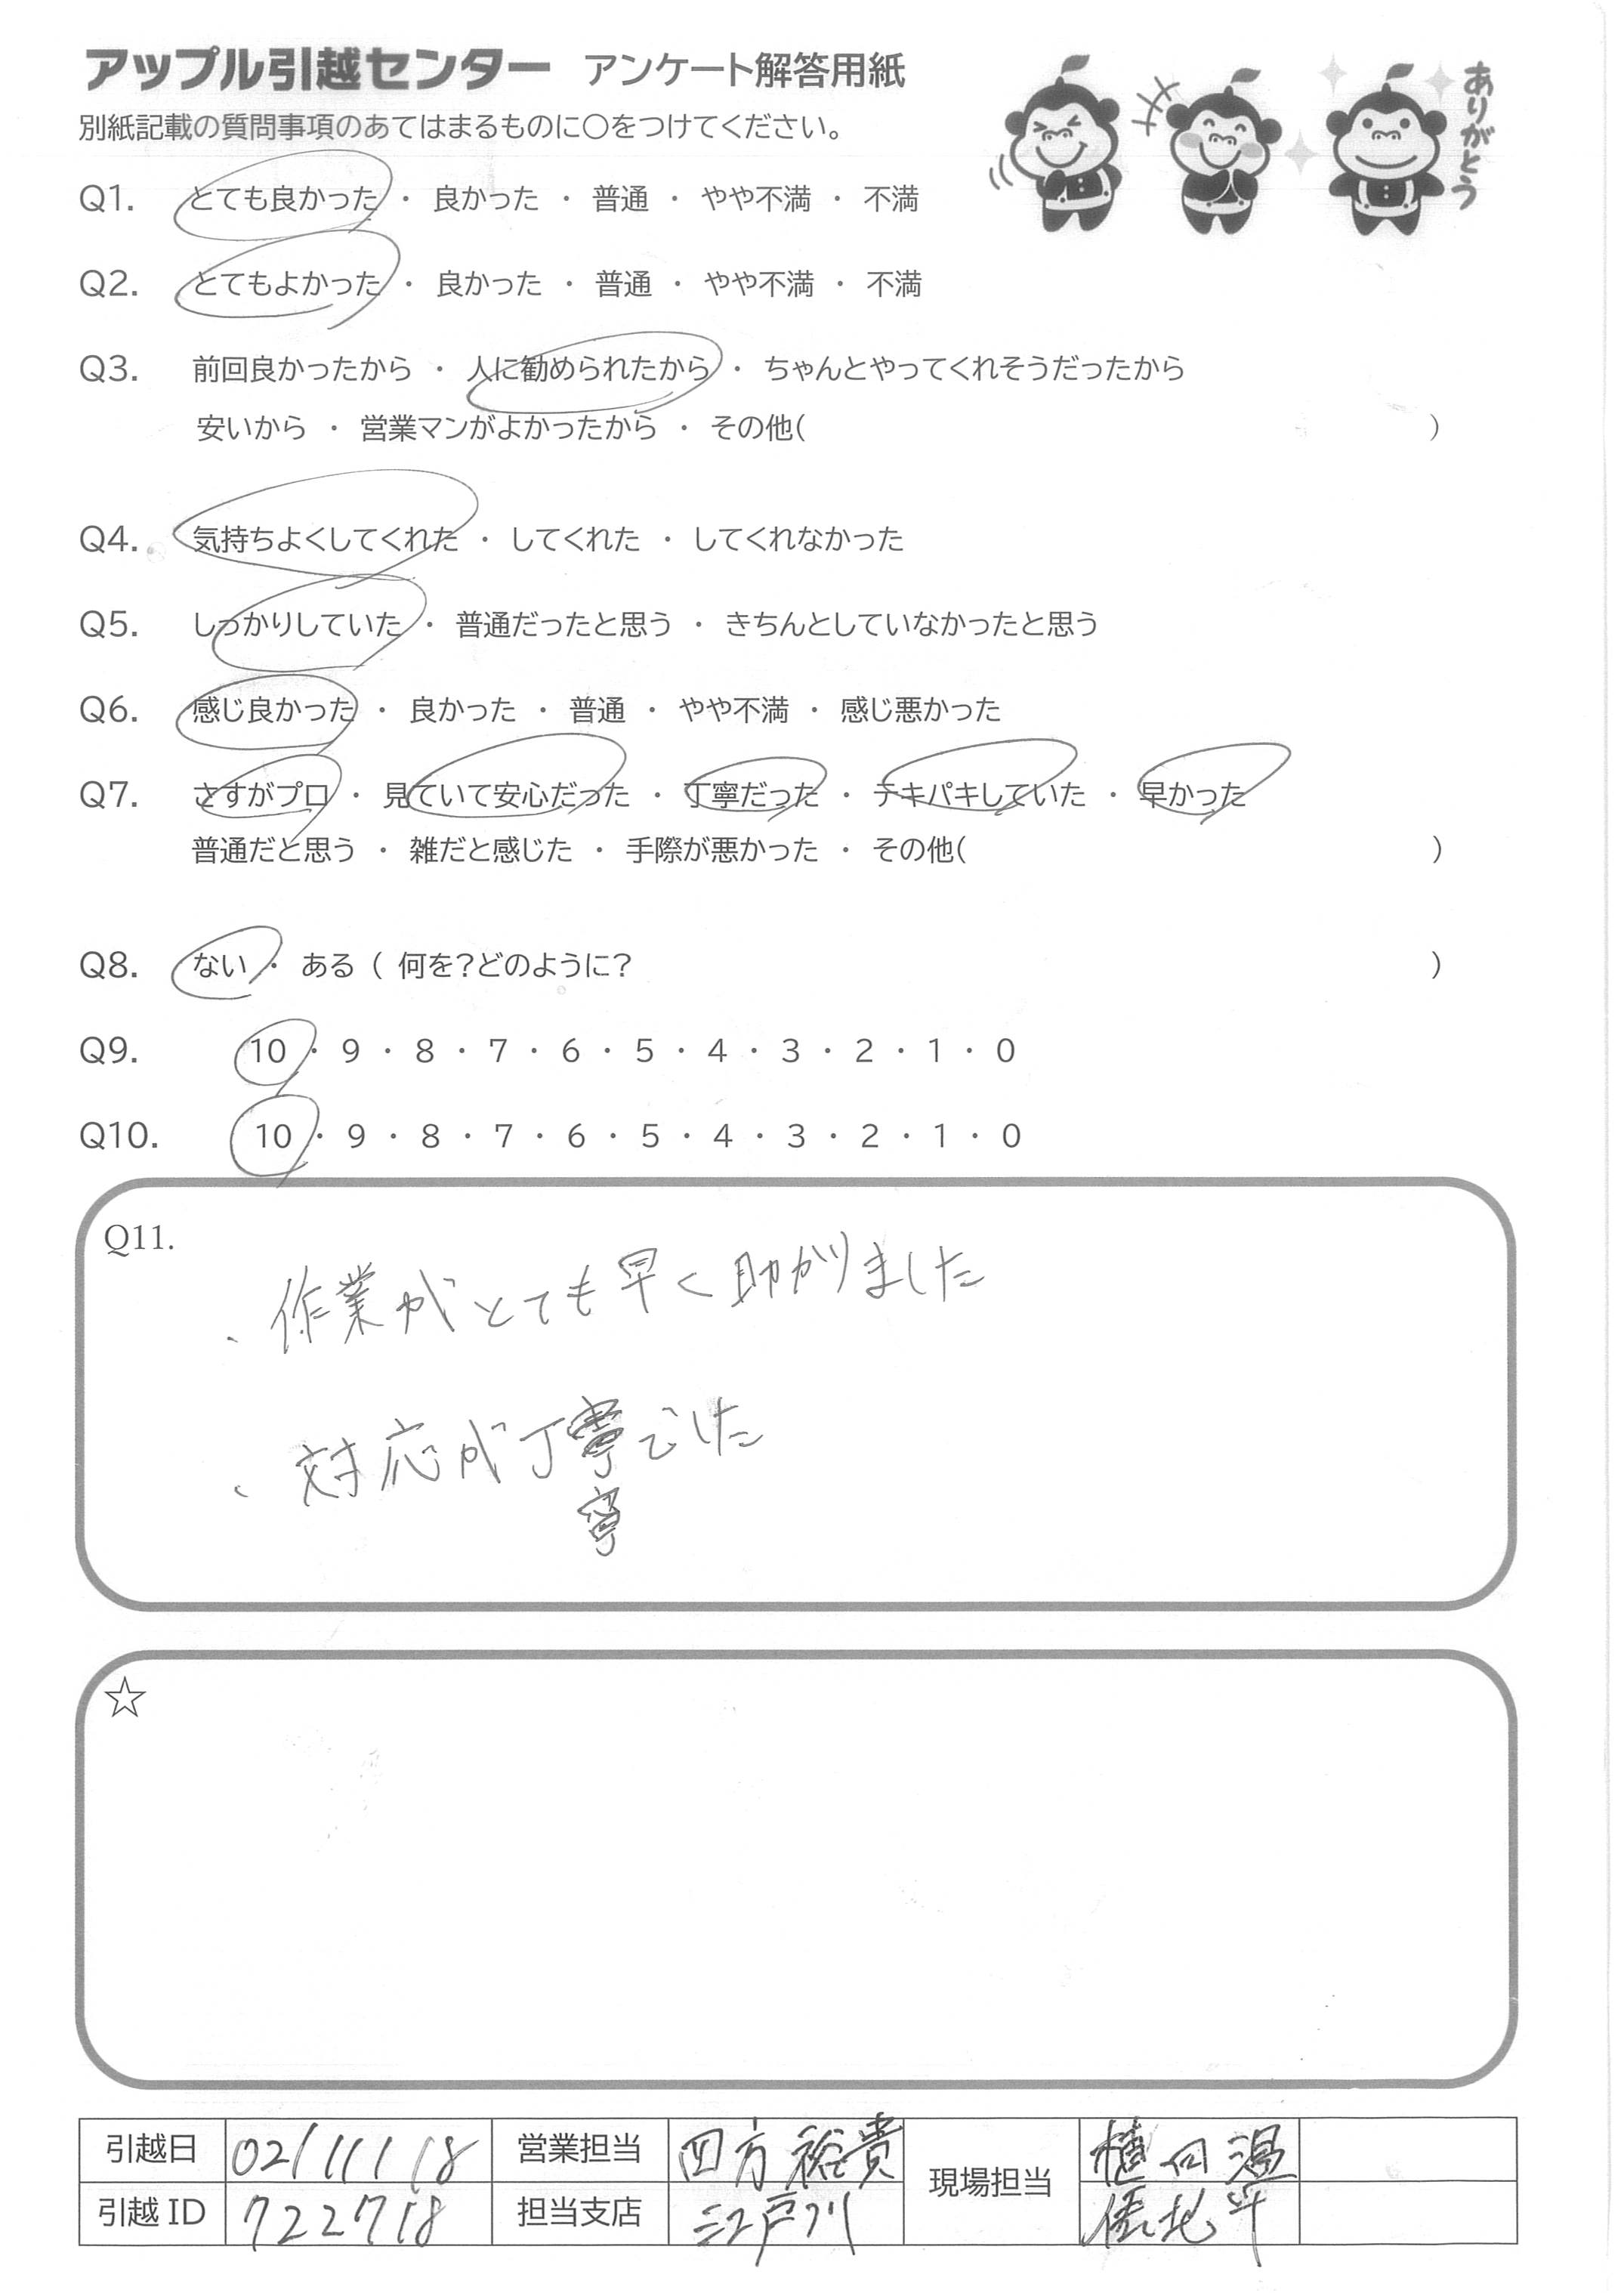 アップル引越センター アンケート解答用紙
別紙記載の質問事項のあてはまるものに〇をつけてください。
ありがとう
Q1. とても良かった ・ 良かった ・ 普通 ・ やや不満 ・ 不満
Q2. とてもよかった ・ 良かった ・ 普通 ・ やや不満 ・ 不満
Q3. 前回良かったから ・ 人に勧められたから ・ ちゃんとやってくれそうだったから
安いから ・ 営業マンがよかったから ・ その他( )
Q4. 気持ちよくしてくれた ・ してくれた ・ してくれなかった
Q5. しっかりしていた ・ 普通だったと思う ・ きちんとしていなかったと思う
Q6. 感じ良かった ・ 良かった ・ 普通 ・ やや不満 ・ 感じ悪かった
Q7. さすがプロ ・ 見ていて安心だった ・ 丁寧だった ・ テキパキしていた ・ 早かった
普通だと思う ・ 雑だと感じた ・ 手際が悪かった ・ その他( )
Q8. ない ・ ある ( 何を?どのように? )
Q9. 10 ・ 9 ・ 8 ・ 7 ・ 6 ・ 5 ・ 4 ・ 3 ・ 2 ・ 1 ・ 0
Q10. 10 ・ 9 ・ 8 ・ 7 ・ 6 ・ 5 ・ 4 ・ 3 ・ 2 ・ 1 ・ 0
Q11.
・作業がとても早く助かりました
・対応が丁寧でした
寧
☆
引越日 02/11/18 営業担当 四方裕貴 現場担当
引越ID 722718 担当支店 江戸川